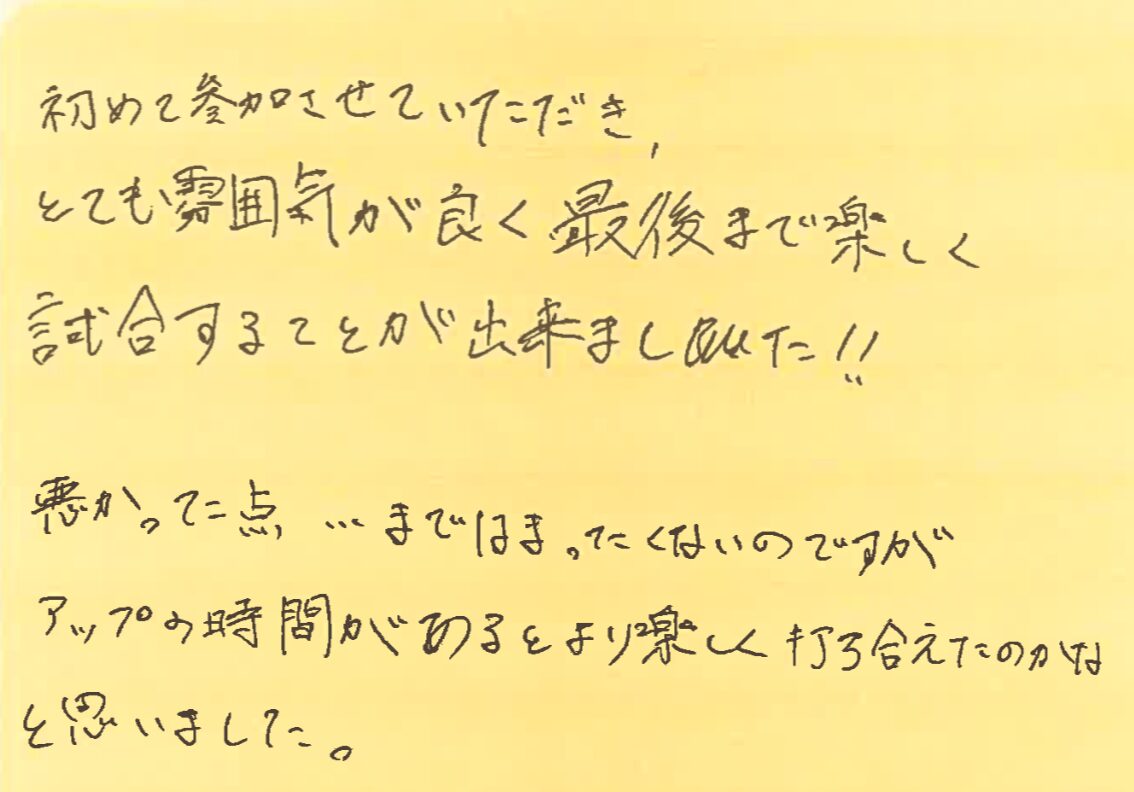 初めて参加させていただき、
とても雰囲気が良く最後まで楽しく
試合することが出来ました!!
悪かった点…まではまったくないのですが
アップの時間があるとより楽しく打ち合えたのかな
と思いました。